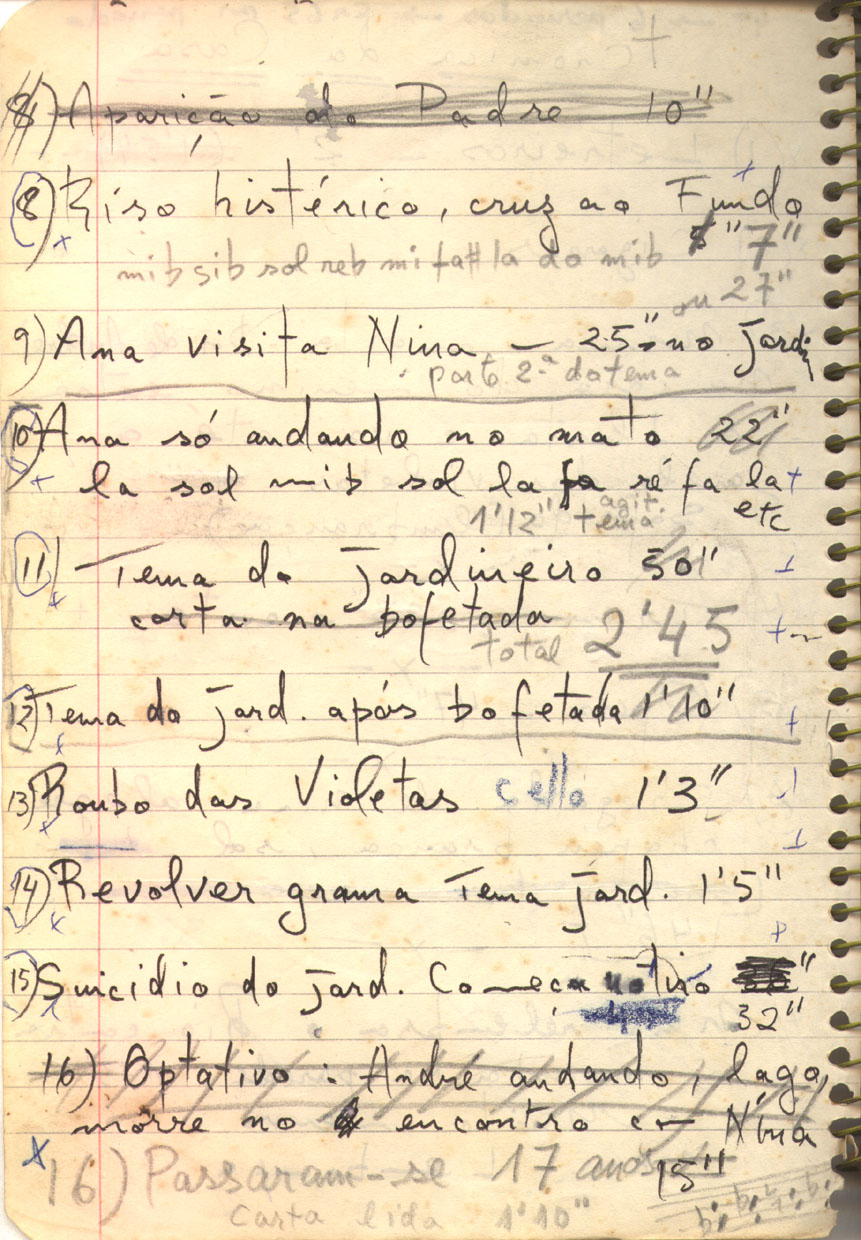 8) Aparição do Padre 10"
8) Riso histérico, cruz ao Fundo
7"
mib sib sol reb mi fa# la do mib
ou 27"
9) Ana visita Nina — 25" no Jardim
parte 2ª do tema
10) Ana só andando no mato 22"
la sol mib sol la fa ré fa la
etc
1'12" tema agit.
11) Tema do Jardineiro 50"
corta na bofetada
total 2'45
12) Tema do Jard. após bofetada 1'10"
13) Roubo das Violetas cello 1'3"
14) Revolver grama Tema Jard. 1'5"
15) Suicídio do Jard. Começa no tiro
32"
16) Optativo: André andando, lago,
morre no encontro c Nina
15"
16) Passaram-se 17 anos
Carta lida 1'10"